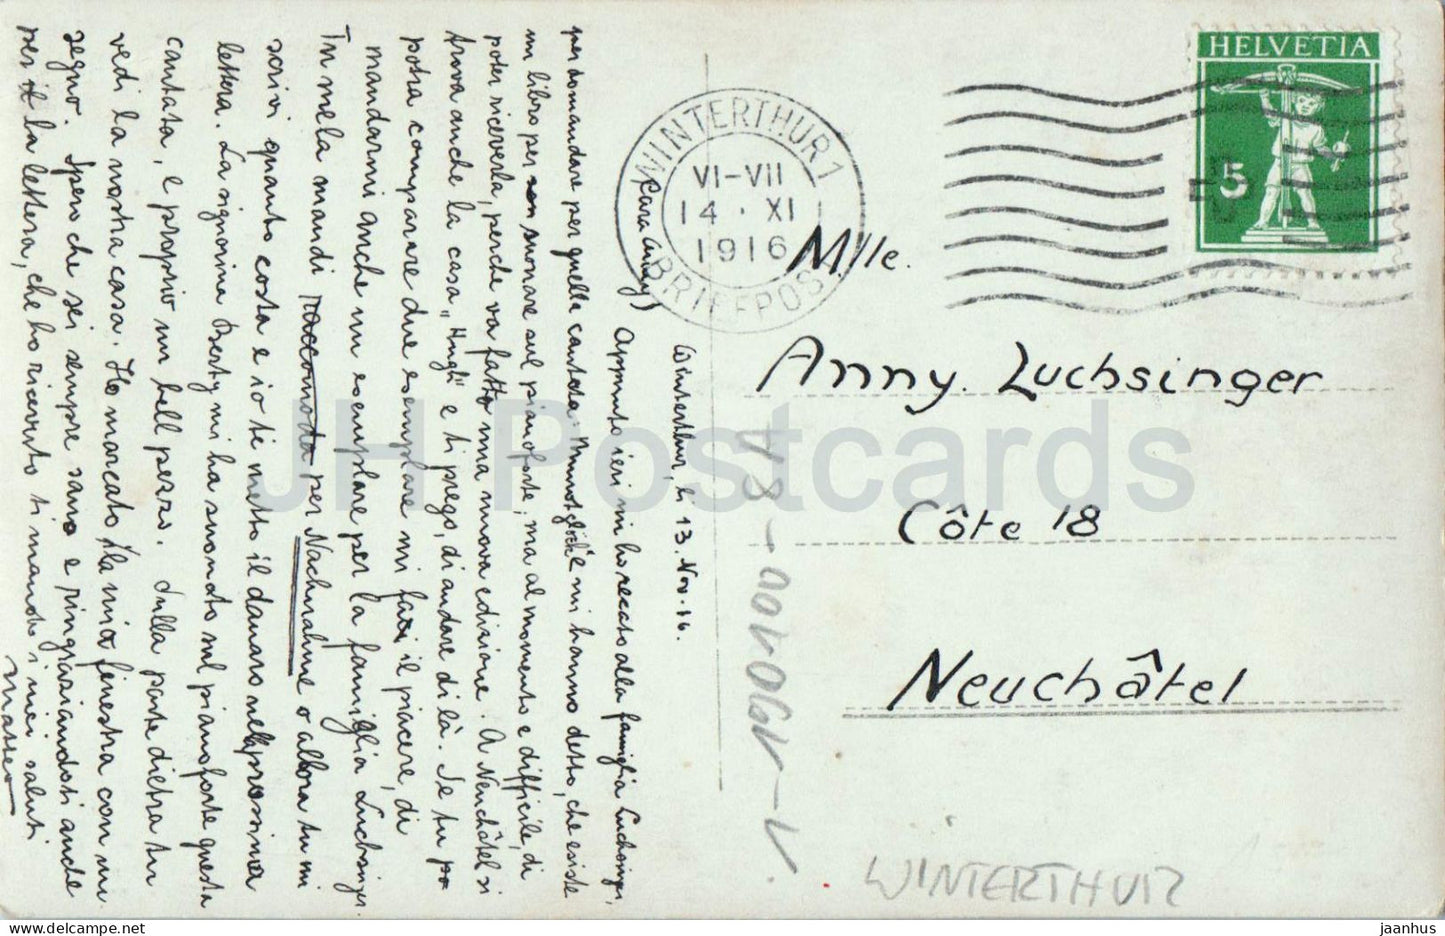 HELVETIA
5
WINTERTHUR 1
VI-VII
14 · XI
1916
BRIEFPOST
Mlle.
Anny. Luchsinger
Côte 18
Neuchâtel
Winterthur, li 13. Nov. 16.
Cara Anny)
Appunto ieri mi ho recato alla famiglia Luchsinger,
per domandare per quella cantata "Munotglöckli" e mi hanno detto, che esiste
un libro per suonare sul pianoforte, ma al momento e difficile, di
poter riceverla, perche va fatto una nuova edizione. A Neuchâtel si
trova anche la casa "Hugli" e ti prego, di andare di là. Se tu
potra comparare due esemplare mi farai il piacere, di
mandarmi anche un esemplare per la famiglia Luchsinger.
Tu mela mandi raccomodo per Nachnahme o allora tu mi
scrivi quanto costa e io ti metto il danaro nell prossima
lettera. La signorina Berty mi ha suonato sul pianoforte questa
cantata, e proprio un bell pezzo. Sulla parte dietra tu
vedi la nostra casa. Ho marcato la mia finestra con un
segno. Spero che sei sempre sano e ringraziandoti anche
per la lettera, che ho ricevuto ti mando i miei saluti
JH Postcards
WINTERTHUR
jaanhus
delcampe.net